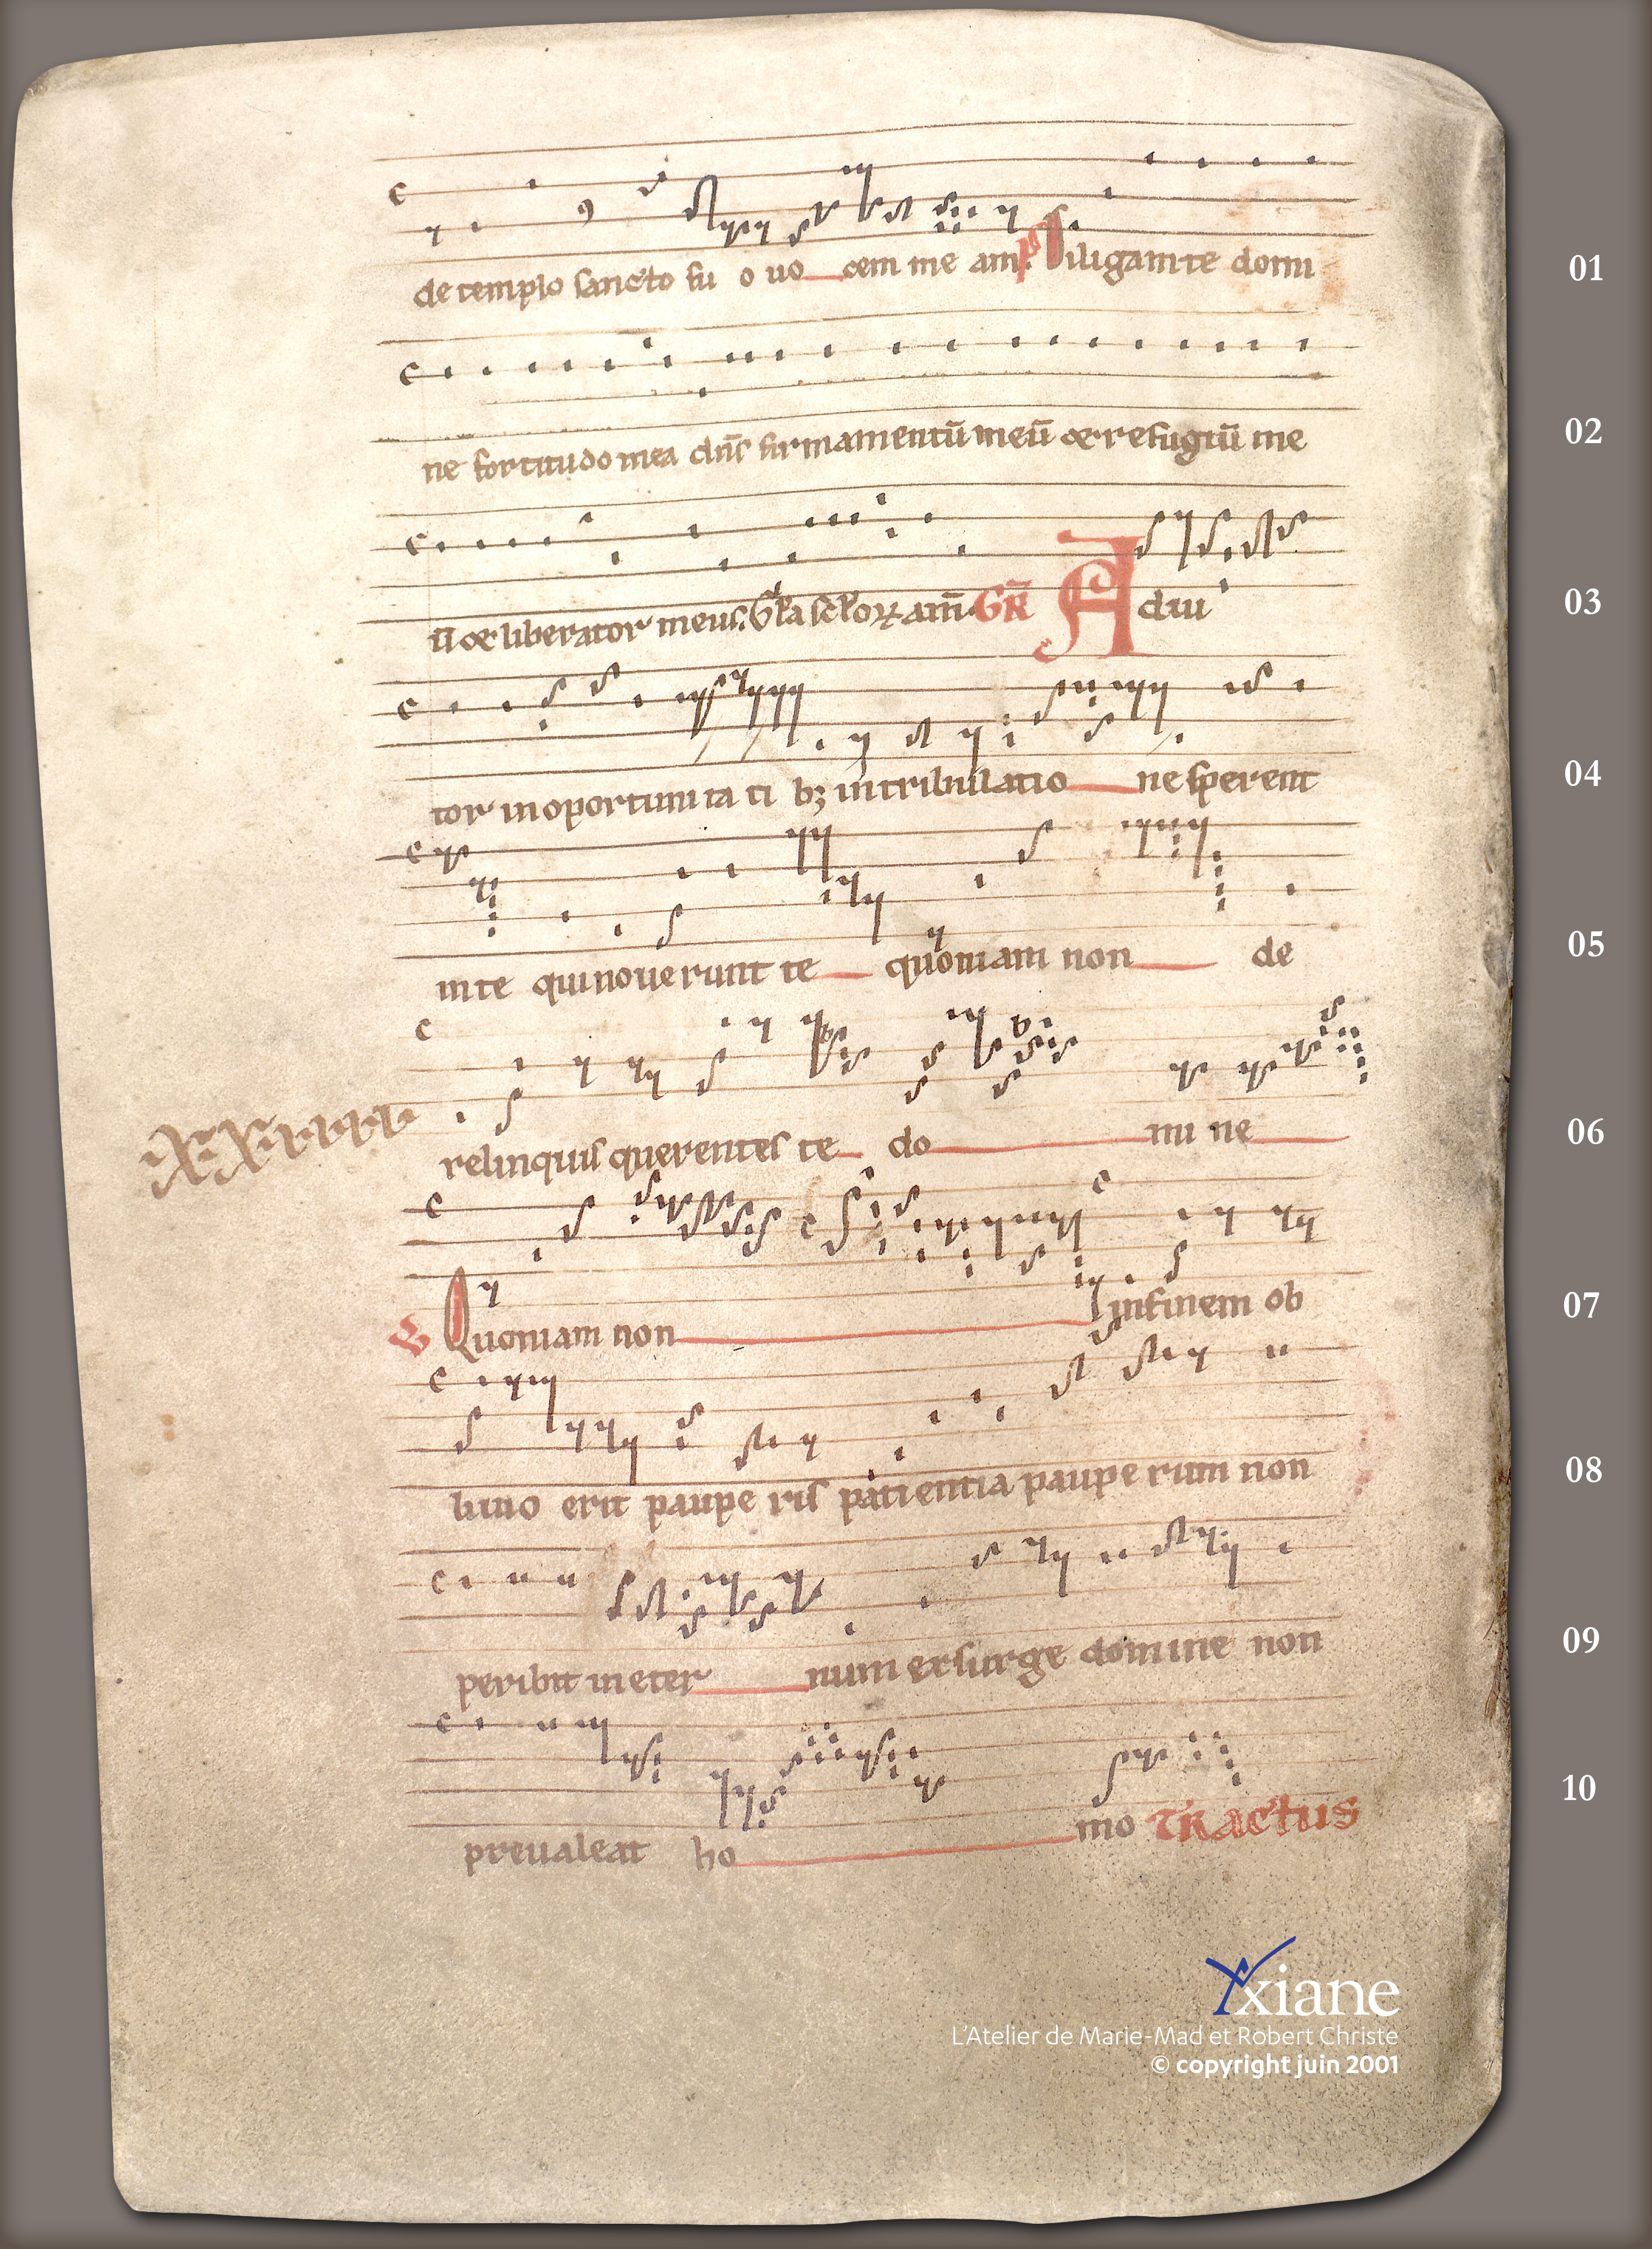 de templo sancto su o uo cem me am. ps Diligam te domi
01
ne fortitudo mea dn̄s firmamentū meū et refugiū me
02
ū et liberator meus. Gl̄a scl̄oꝝ am̄. GR̄ Adiu
03
tor in oportuni ta ti bꝫ in tribulatio ne sperent
04
in te qui nouerunt te quoniam non de
05
relinquis querentes te do mi ne
06
℣ Quoniam non in finem ob
07
liuio erit paupe ris patientia paupe rum non
08
peribit in eter num exsurge domine non
09
preualeat ho mo TRactus
10
Yxiane
L'Atelier de Marie-Mad et Robert Christe
© copyright juin 2001